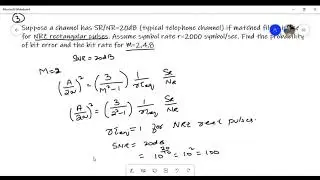 Microsoft Whiteboard
1
Suppose a channel has SR/NR=20dB (typical telephone channel) if matched fil
for NRZ rectangular pulses. Assume symbol rate r=2000 symbol/sec. Find the probability
of bit error and the bit rate for M=2,4,8
SNR = 20dB
M=2
(A/2σ)² = (3/(M²-1)) 1/(rτeq) SR/NR
(A/2σ)² = (3/(2²-1)) 1/(rτeq) SR/NR
rτeq = 1 for NRZ rect pulses.
SNR = 20dB
= 10^(20/10) = 10² = 100